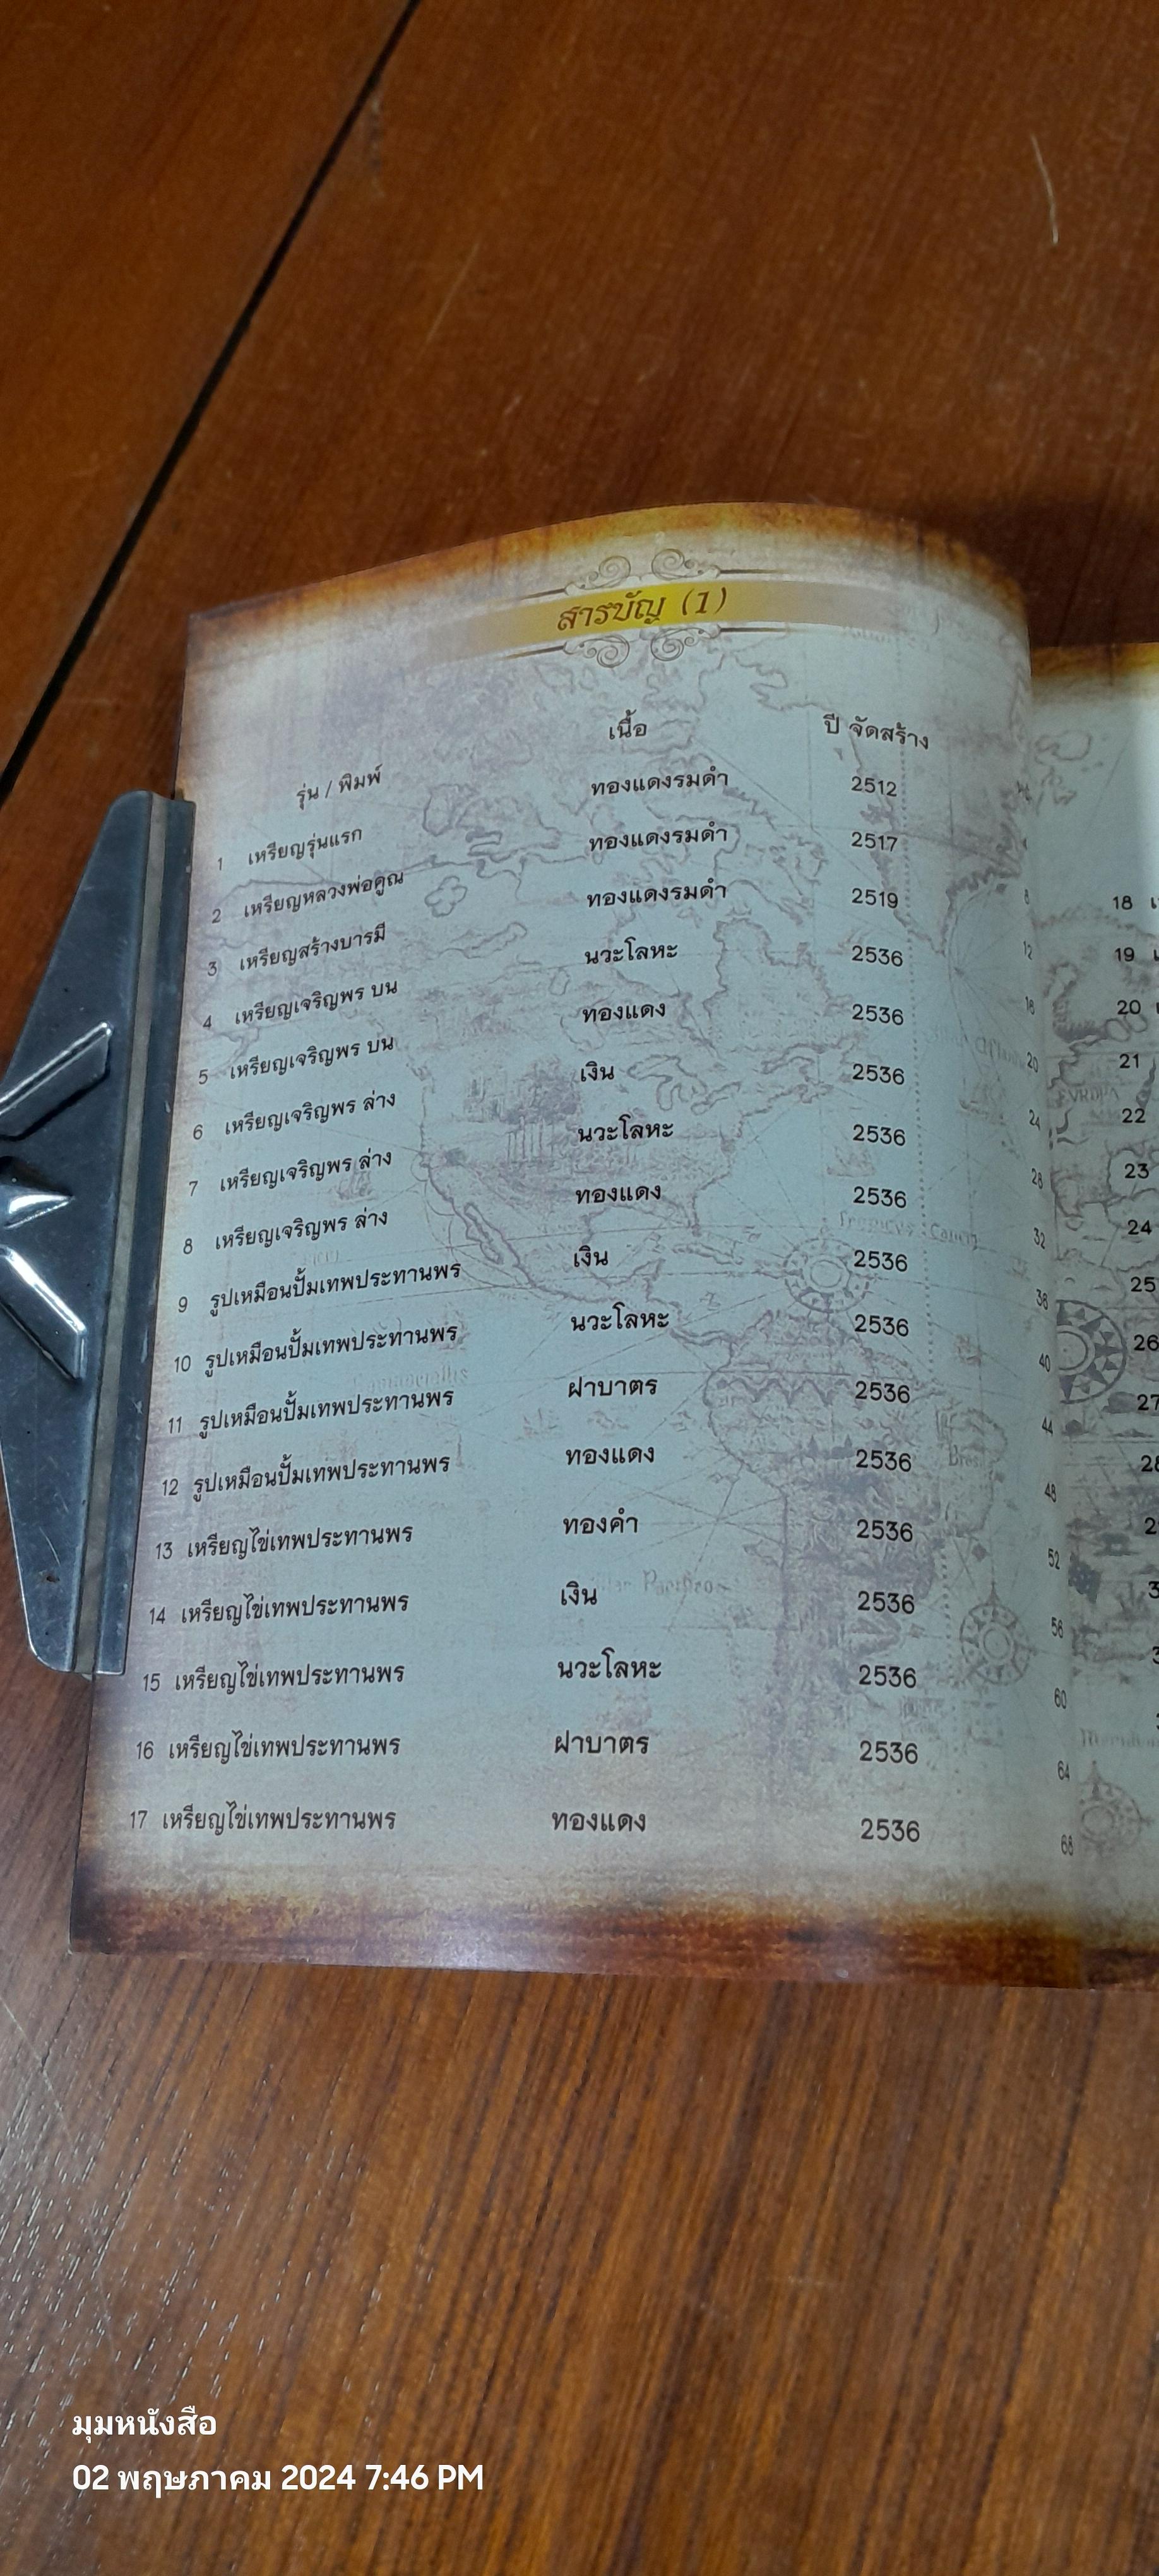 สารบัญ (1)
รุ่น / พิมพ์ เนื้อ ปี จัดสร้าง
1 เหรียญรุ่นแรก ทองแดงรมดำ 2512
2 เหรียญหลวงพ่อคูณ ทองแดงรมดำ 2517 8
3 เหรียญสร้างบารมี ทองแดงรมดำ 2519 12
4 เหรียญเจริญพร บน นวะโลหะ 2536 16
5 เหรียญเจริญพร บน ทองแดง 2536 20
6 เหรียญเจริญพร ล่าง เงิน 2536 24
7 เหรียญเจริญพร ล่าง นวะโลหะ 2536 28
8 เหรียญเจริญพร ล่าง ทองแดง 2536 32
9 รูปเหมือนปั้มเทพประทานพร เงิน 2536 36
10 รูปเหมือนปั้มเทพประทานพร นวะโลหะ 2536 40
11 รูปเหมือนปั้มเทพประทานพร ฝาบาตร 2536 44
12 รูปเหมือนปั้มเทพประทานพร ทองแดง 2536 48
13 เหรียญไข่เทพประทานพร ทองคำ 2536 52
14 เหรียญไข่เทพประทานพร เงิน 2536 56
15 เหรียญไข่เทพประทานพร นวะโลหะ 2536 60
16 เหรียญไข่เทพประทานพร ฝาบาตร 2536 64
17 เหรียญไข่เทพประทานพร ทองแดง 2536 68
18
19
20
21
22
23
24
25
26
27
มุมหนังสือ
02 พฤษภาคม 2024 7:46 PM